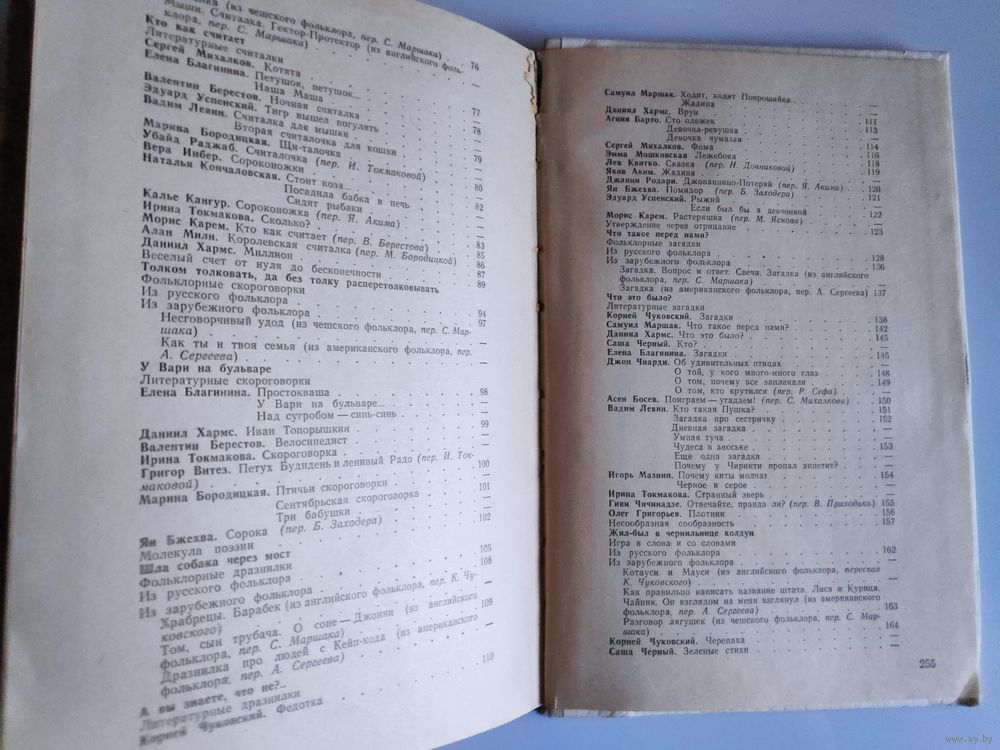 (из чешского фольклора, пер. С. Маршака)
Мыши. Считалка. Гектор-Протектор (из английского фоль-
клора, пер. С. Маршака) . 76
Кто как считает
Литературные считалки
Сергей Михалков. Котята
Елена Благинина. Петушок, петушок...
Наша Маша 77
Валентин Берестов. Ночная считалка —
Эдуард Успенский. Тигр вышел погулять 78
Вадим Левин. Считалка для мышки —
Вторая считалочка для кошки —
Марина Бородицкая. Щи-талочка 79
Убайд Раджаб. Считалочка (пер. И. Токмаковой) —
Вера Инбер. Сороконожки 80
Наталья Кончаловская. Стоит коза... —
Посадила бабка в печь 82
Сидят рыбаки —
Калье Кангур. Сороконожка (пер. Я. Акима) —
Ирина Токмакова. Сколько? 83
Морис Карем. Кто как считает (пер. В. Берестова) 85
Алан Милн. Королевская считалка (пер. М. Бородицкой) 86
Даниил Хармс. Миллион 87
Веселый счет от нуля до бесконечности 89
Толком толковать, да без толку расперетолковывать
Фольклорные скороговорки
Из русского фольклора 94
Из зарубежного фольклора 97
Несговорчивый удод (из чешского фольклора, пер. С. Мар-
шака) —
Как ты и твоя семья (из американского фольклора, пер.
А. Сергеева) —
У Вари на бульваре
Литературные скороговорки
Елена Благинина. Простокваша 98
У Вари на бульваре... —
Над сугробом — синь-синь —
Даниил Хармс. Иван Топорышкин 99
Валентин Берестов. Велосипедист —
Ирина Токмакова. Скороговорка —
Григор Витез. Петух Будидень и ленивый Радо (пер. И. Ток-
маковой) 100
Марина Бородицкая. Птичьи скороговорки 101
Сентябрьская скороговорка —
Три бабушки —
Ян Бжехва. Сорока (пер. Б. Заходера) 102
Молекула поэзии
Шла собака через мост
Фольклорные дразнилки
Из русского фольклора 106
Из зарубежного фольклора 108
Храбрецы. Барабек (из английского фольклора, пер. К. Чу-
ковского) 109
Том, сын трубача. О соне — Джонни (из английского
фольклора, пер. С. Маршака) —
Дразнилка про людей с Кейп-кода (из американского
фольклора, пер. А. Сергеева) 110
А вы знаете, что не?..
Литературные дразнилки
Корней Чуковский. Федотка
Самуил Маршак. Ходит, ходит Попрошайка... —
Жадина —
Даниил Хармс. Врун 111
Агния Барто. Сто одежек 113
Девочка-ревушка —
Девочка чумазая 114
Сергей Михалков. Фома 116
Эмма Мошковская Лежебока 118
Лев Квитко. Сказка (пер. Н. Донниковой) 119
Яков Аким. Жадина —
Джанни Родари. Джованнино-Потеряй (пер. Я. Акима) 120
Ян Бжехва. Помидор (пер. Б. Заходера) 121
Эдуард Успенский. Рыжий —
Если был бы я девчонкой 122
Морис Карем. Растеряшка (пер. М. Яснова) 123
Утверждение через отрицание
Что такое перед нами?
Фольклорные загадки
Из русского фольклора 128
Из зарубежного фольклора 136
Загадка. Вопрос и ответ. Свеча. Загадка (из английского
фольклора, пер. С. Маршака) —
Загадка (из американского фольклора, пер. А. Сергеева) 137
Что это было?
Литературные загадки
Корней Чуковский. Загадки 138
Самуил Маршак. Что такое перед нами? 142
Даниил Хармс. Что это было? 145
Саша Черный. Кто? —
Елена Благинина. Загадки 146
Джон Чиарди. Об удивительных птицах —
О той, у кого много-много глаз 148
О том, почему все заплакали 149
О том, кто крутился (пер. Р. Сефа) —
Асен Босев. Поиграем — угадаем! (пер. С. Михалкова) 150
Вадим Левин. Кто такая Пушка? 151
Загадка про сестричку 152
Дневная загадка —
Умная туча —
Чудеса в авоське 153
Еще одна загадка —
Почему у Чирикти пропал аппетит? —
Игорь Мазнин. Почему киты молчат 154
Черное и серое —
Ирина Токмакова. Странный зверь —
Гиви Чичинадзе. Отвечайте, правда ли? (пер. В. Приходько) 155
Олег Григорьев. Плотник 156
Несообразная сообразность 157
Жил-был в чернильнице колдун
Игра в слова и со словами
Из русского фольклора 162
Из зарубежного фольклора
Котауси и Мауси (из английского фольклора, пересказ
К. Чуковского) —
Как правильно написать название штата. Лиса и Курица.
Чайник. Он взглядом на меня взглянул (из американского
фольклора, пер. А. Сергеева) 163
Разговор лягушек (из чешского фольклора, пер. С. Мар-
шака) 164
Корней Чуковский. Черепаха —
Саша Черный. Зеленые стихи —
255
www.ay.by